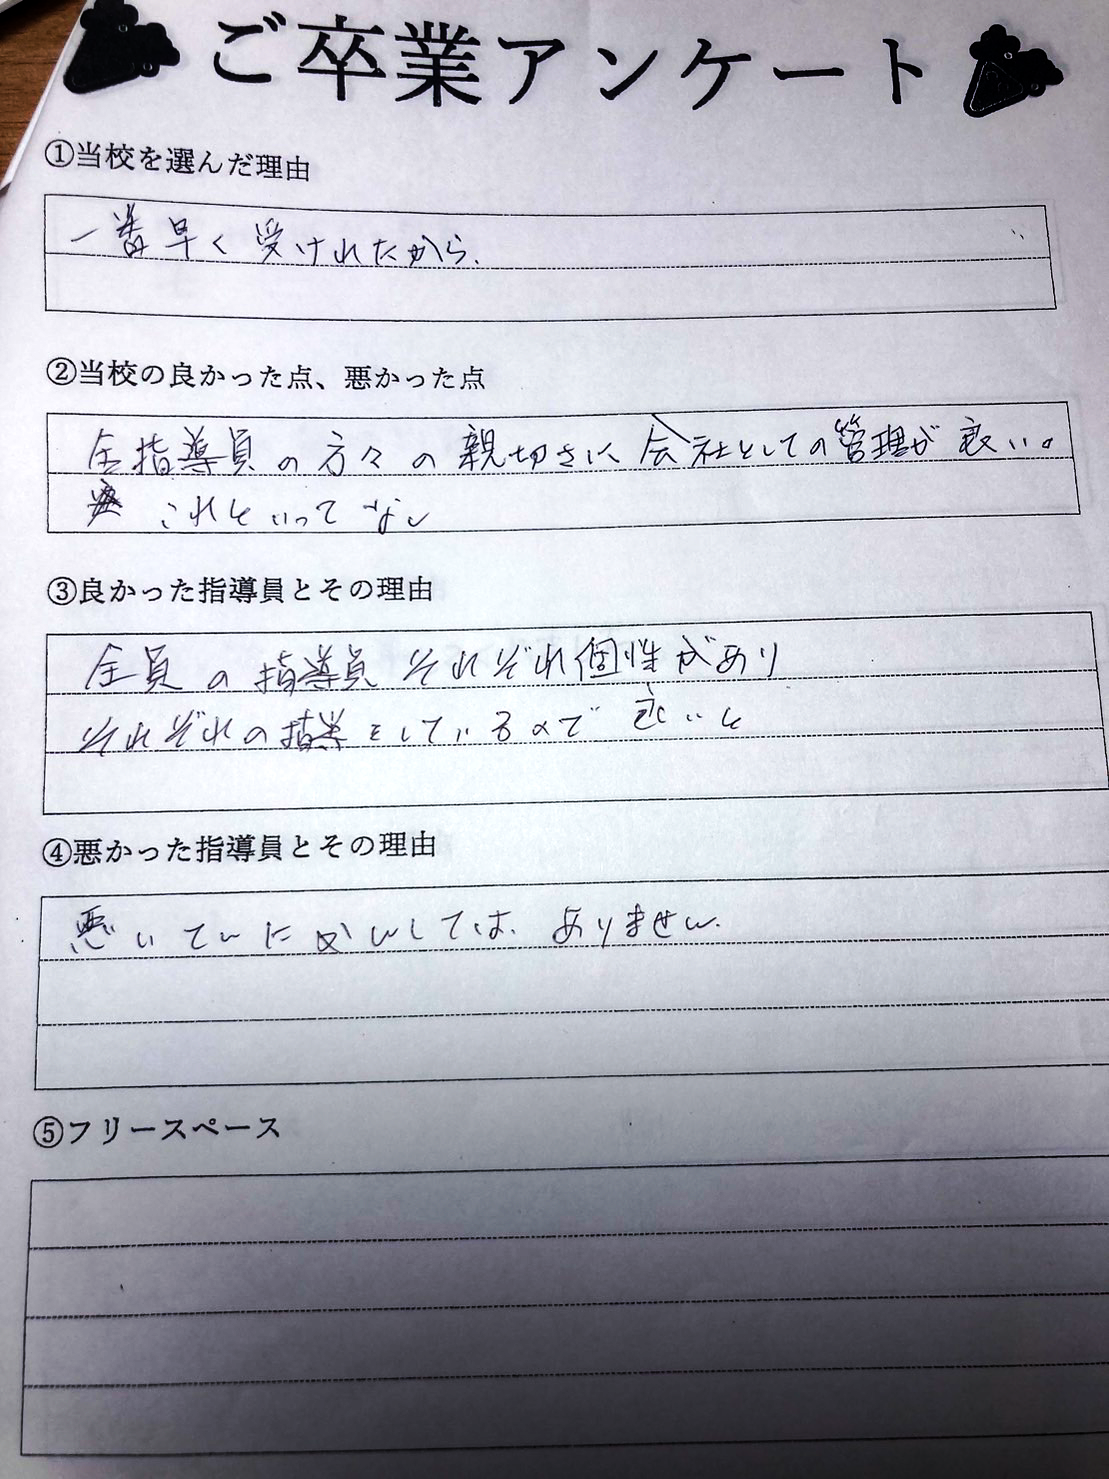 ご卒業アンケート
①当校を選んだ理由
一番早く受けれたから.
②当校の良かった点、悪かった点
全指導員の方々の親切さに会社としての管理が良い。
これといってなし
③良かった指導員とその理由
全員の指導員それぞれ個性があり
それぞれの指導をしているので良いと
④悪かった指導員とその理由
悪いてんにかんしては、ありません.
⑤フリースペース